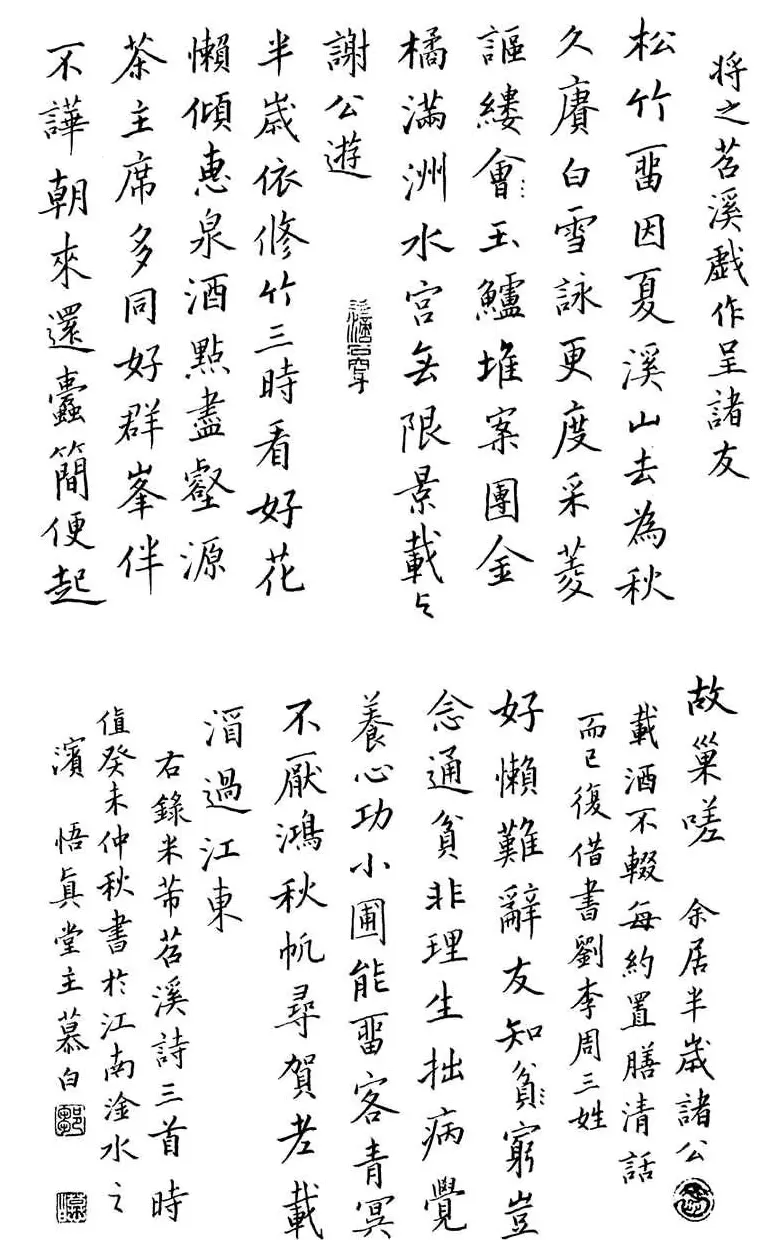 将之苕溪戯作呈諸友
松竹畱因夏溪山去為秋
久賡白雪詠更度采菱
謳縷會玉鱸堆案團金
橘滿洲水宮無限景載与
謝公遊
半歲依修竹三時看好花
懶傾惠泉酒點盡壑源
茶主席多同好群峯伴
不譁朝來還蠹簡便起
故巢嗟 余居半歲諸公
載酒不輟每約置膳清話
而已復借書劉李周三姓
好懶難辭友知貧窮豈
念通貧非理生拙病覺
養心功小圃能畱客青冥
不厭鴻秋帆尋賀老載
酒過江東
右錄米芾苕溪詩三首 時
值癸未仲秋書於江南淦水之
濱 悟眞堂主慕白